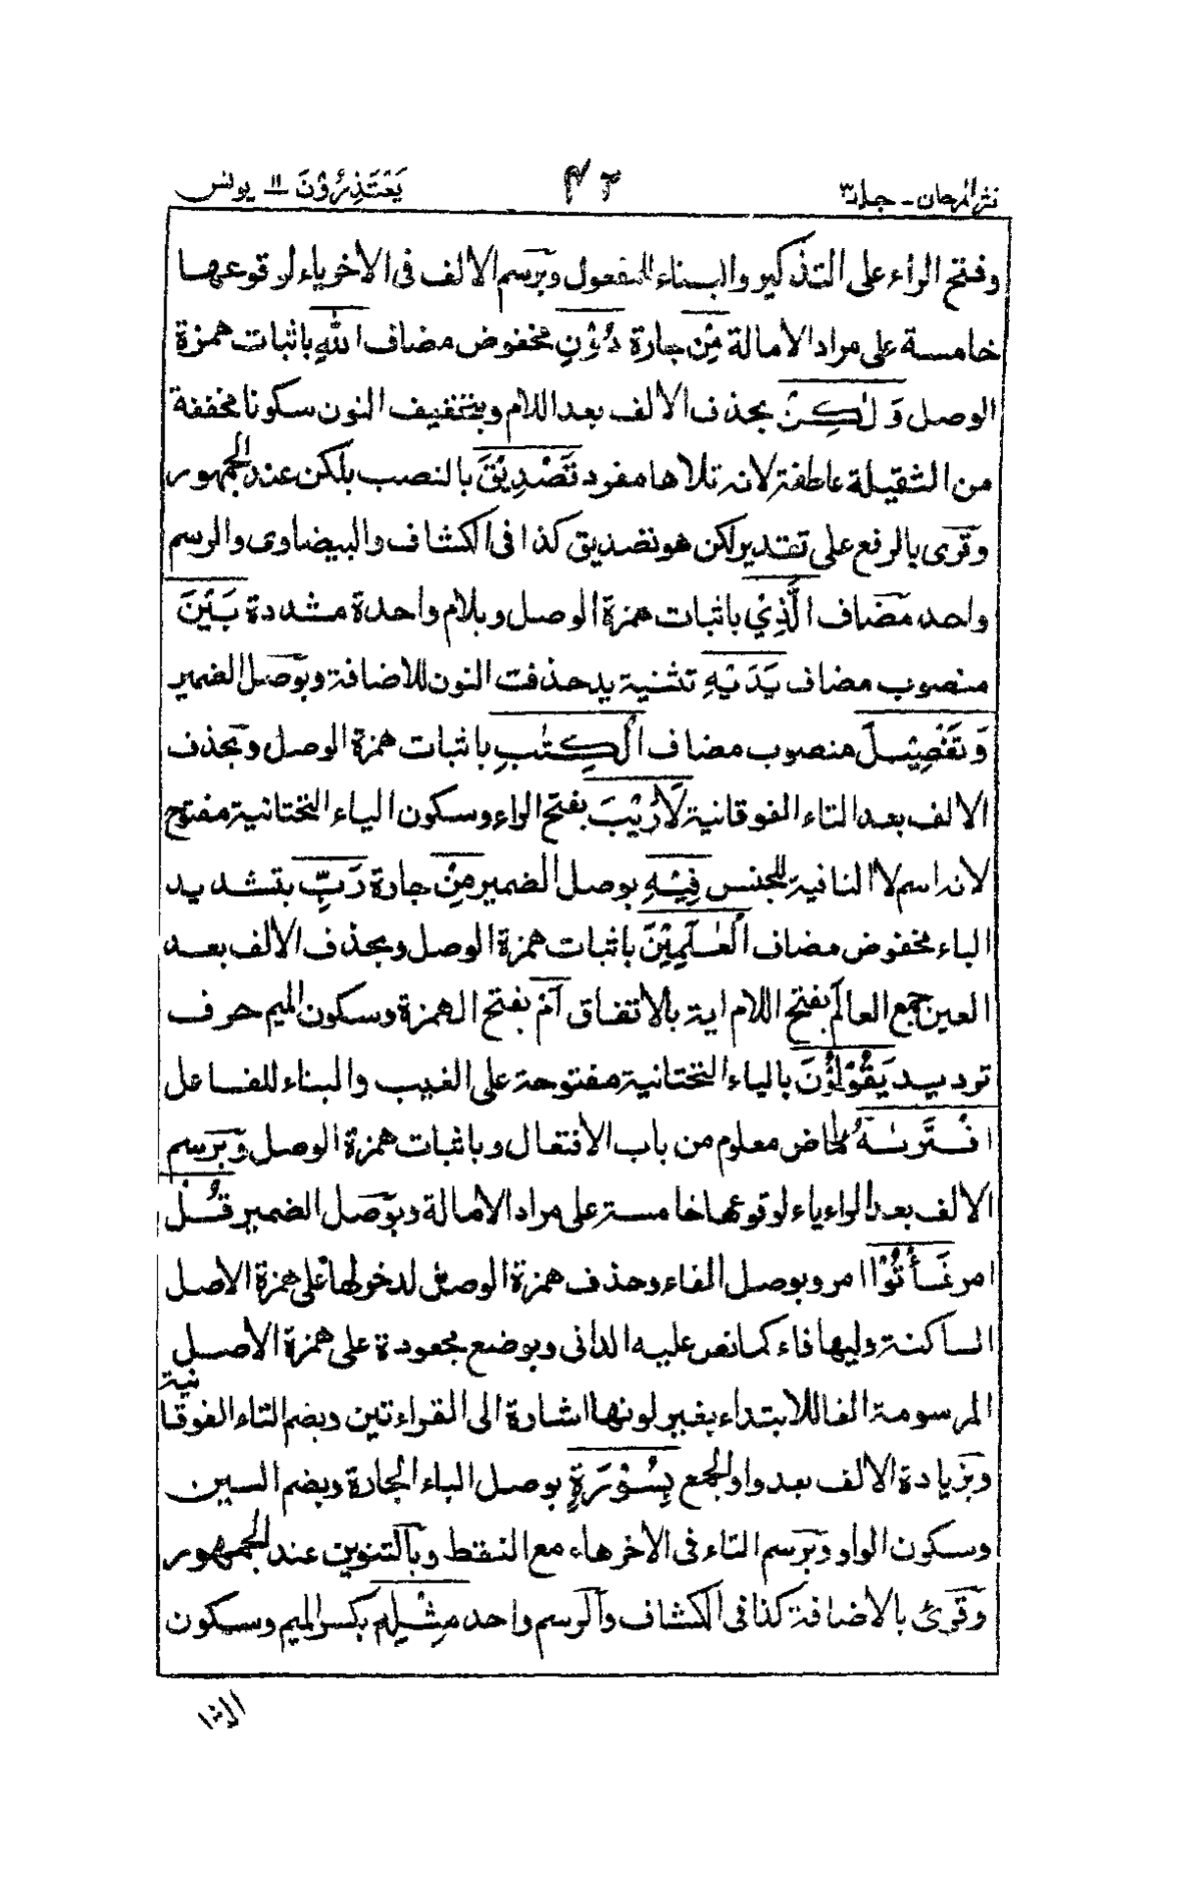 نثر المرجان ـ جلد ٣
٤٢
يَعْتَذِرُوْنَ ١١ يونس
وفتح الراء على التذكير والبناء للمفعول وبرسم الالف فى الاخر ياء لوقوعها
خامسة على مراد الامالة مِنْ جارة دُوْنِ مخفوض مضاف اللّٰهِ باثبات همزة
الوصل وَلٰكِنْ بحذف الالف بعد اللام وبتخفيف النون سكونا مخففة
من الثقيلة عاطفة لانه تلاها مفرد تَصْدِيْقَ بالنصب بلكن عند الجمهور
وقرى بالرفع على تقدير لكن هو تصديق كذا فى الكشاف والبيضاوى والرسم
واحد مضاف الَّذِيْ باثبات همزة الوصل وبلام واحدة مشددة بَيْنَ
منصوب مضاف يَدَيْهِ تثنية يد حذفت النون للاضافة وبوصل الضمير
وَتَفْصِيْلَ منصوب مضاف الْكِتٰبِ باثبات همزة الوصل وبحذف
الالف بعد التاء الفوقانية لَا رَيْبَ بفتح الراء وسكون الياء التحتانية مفتوح
لانه اسم لا النافية للجنس فِيْهِ بوصل الضمير مِنْ جارة رَبِّ بتشديد
الباء مخفوض مضاف الْعٰلَمِيْنَ باثبات همزة الوصل وبحذف الالف بعد
العين جمع العالم بفتح اللام اية بالاتفاق اَمْ بفتح الهمزة وسكون الميم حرف
ترديد يَقُوْلُوْنَ بالياء التحتانية مفتوحة على الغيب والبناء للفاعل
افْتَرٰىهُ ماض معلوم من باب الافتعال وباثبات همزة الوصل وبرسم
الالف بعد الراء ياء لوقوعها خامسة على مراد الامالة وبوصل الضمير قُلْ
امر فَأْتُوْا امر وبوصل الفاء وحذف همزة الوصل لدخولها على همزة الاصل
الساكنة وليها فاء كما نص عليه الدانى وبوضع مجعودة على همزة الاصل
المرسومة الفا للابتداء بغير لونها اشارة الى القراءتين وبضم التاء الفوقانية
وبزيادة الالف بعد واو الجمع بِسُوْرَةٍ بوصل الباء الجارة وبضم السين
وسكون الواو وبرسم التاء فى الاخر هاء مع النقط وبالتنوين عند الجمهور
وقرئ بالاضافة كذا فى الكشاف والرسم واحد مِثْلِهٖ بكسر الميم وسكون